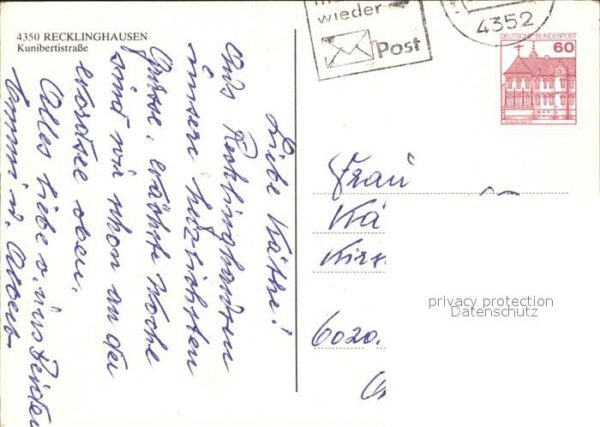 4350 RECKLINGHAUSEN
Kunibertistraße
wieder
Post
4352
DEUTSCHE BUNDESPOST
60
Liebe Käthe!
Aus Recklinghausen
unsere herzlichsten
Grüsse, nächste Woche
sind wir schon an der
Nordsee oben.
Alles Liebe v. uns Beiden
Frau
Kä
Kir
6020.
privacy protection
Datenschutz